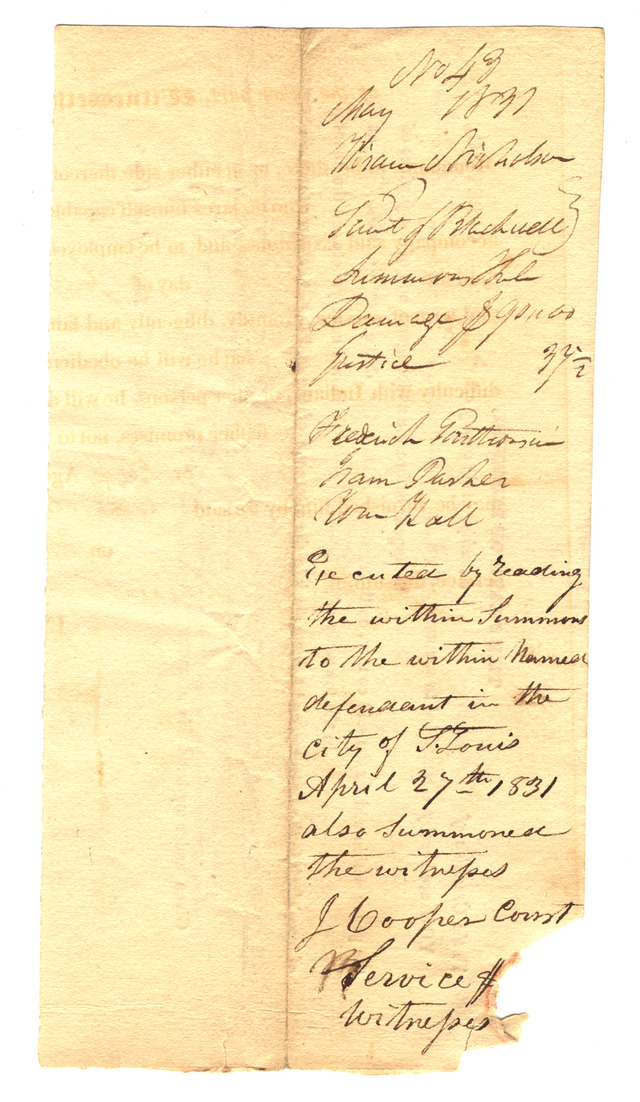 No 43
May 1831
Hiram Nicholson
Blackwell
Summons
Damage $90.00
Justice 37½
Fredrick
Parker
Wm Hall
Executed by reading
the within Summons
to the within Named
defendant in the
city of St Louis
April 27th 1831
also Summoned
the witnesses
J Cooper Const
Service $
witnesses